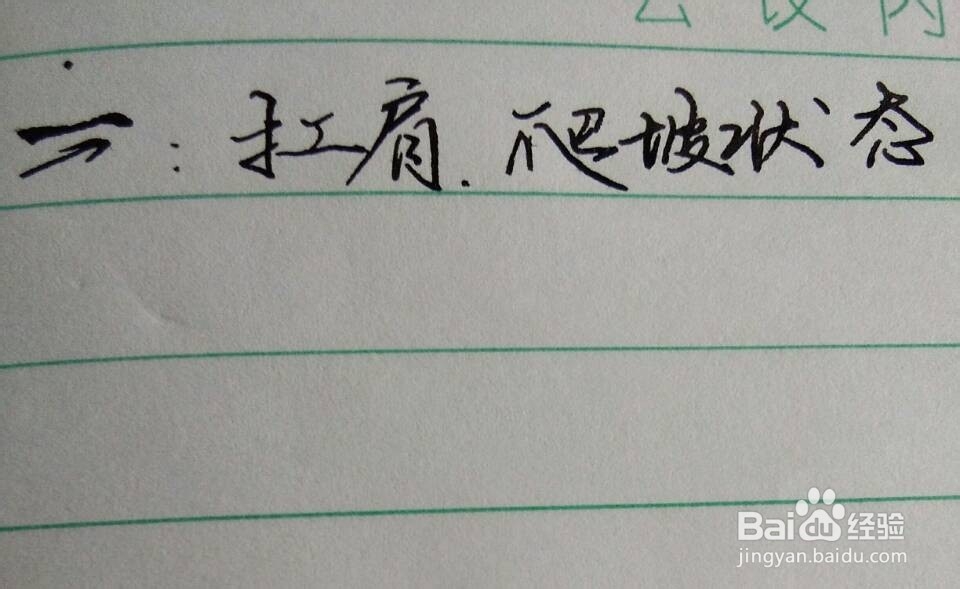 会议内
二：扛肩.爬坡状态
Baidu经验
jingyan.baidu.com